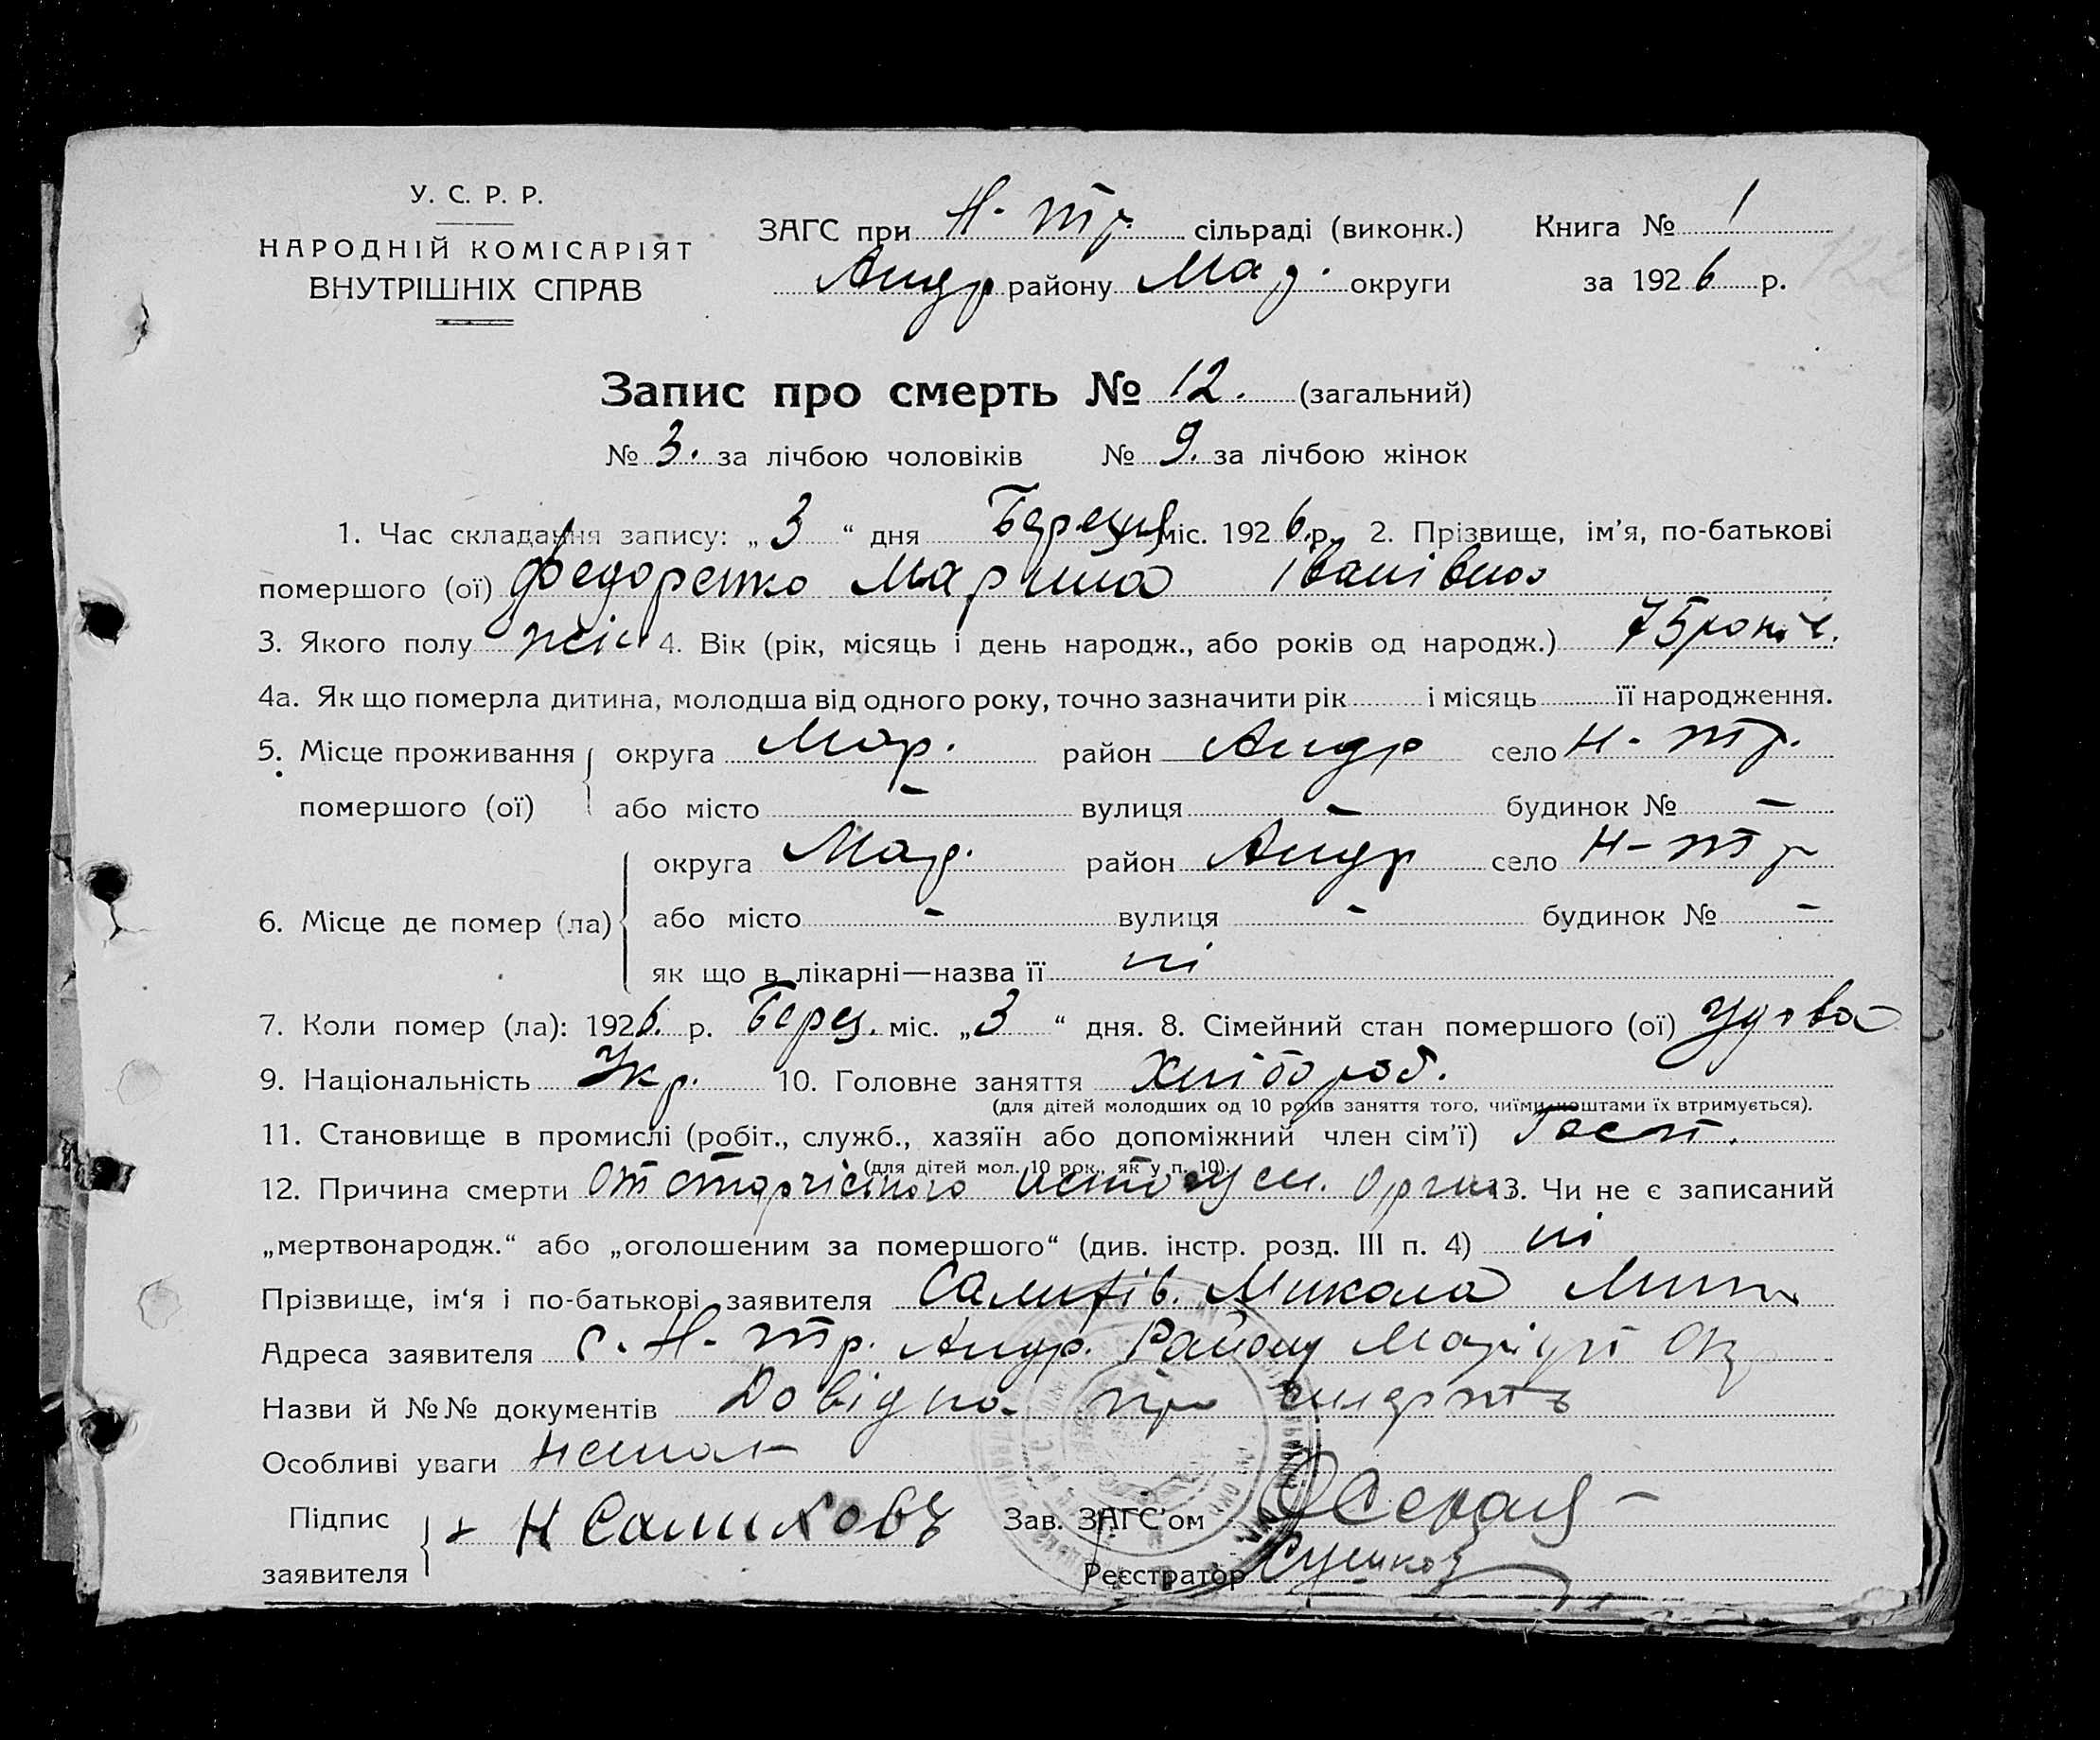 У. С. Р. Р.
НАРОДНІЙ КОМІСАРІЯТ
ВНУТРІШНІХ СПРАВ
ЗАГС при Н-Тр. сільраді (виконк.)
Андр району Мар. округи
Книга № 1
за 1926 р.
Запис про смерть № 12. (загальний)
№ 3. за лічбою чоловіків № 9. за лічбою жінок
1. Час складання запису: „3“ дня Березня міс. 1926 р. 2. Прізвище, ім'я, по-батькові
помершого (ої) Федоренко Марина Іванівна
3. Якого полу жін 4. Вік (рік, місяць і день народж., або років од народж.) 75 років.
4а. Як що померла дитина, молодша від одного року, точно зазначити рік і місяць її народження.
5. Місце проживання округа Мар. район Андр село Н-Тр.
помершого (ої) або місто – вулиця – будинок № –
округа Мар. район Андр село Н-Тр
6. Місце де помер (ла) або місто – вулиця – будинок № –
як що в лікарні—назва її ні
7. Коли помер (ла): 1926. р. Берез. міс. „3“ дня. 8. Сімейний стан помершого (ої) Удова
9. Національність Укр. 10. Головне заняття Хлібороб.
(для дітей молодших од 10 років заняття того, чиїми коштами їх втримується).
11. Становище в промислі (робіт., служб., хазяїн або допоміжний член сім'ї)
(для дітей мол. 10 рок., як у п. 10).
12. Причина смерти От 13. Чи не є записаний
„мертвонародж.“ або „оголошеним за помершого“ (див. інстр. розд. III п. 4) ні
Прізвище, ім'я і по-батькові заявителя Микола
Адреса заявителя с. Н-Тр. Андр. Району
Назви й №№ документів Довідка про
Особливі уваги немає
Підпис заявителя + Н Салиховъ
Зав. ЗАГС'ом
Реєстратор